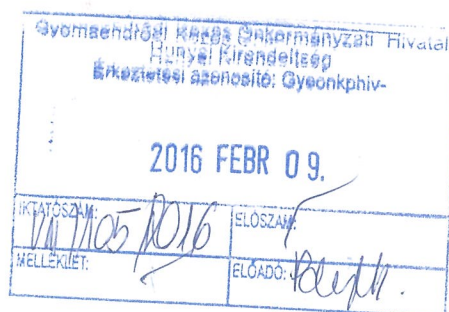 Gyomaendrődi Közös Önkormányzati Hivatal
Hunyai Kirendeltség
Érkeztetési azonosító: Gyeonkphiv-
2016 FEBR 09.
IKTATÓSZÁM: /2016
ELŐSZÁM:
MELLÉKLET:
ELŐADÓ: